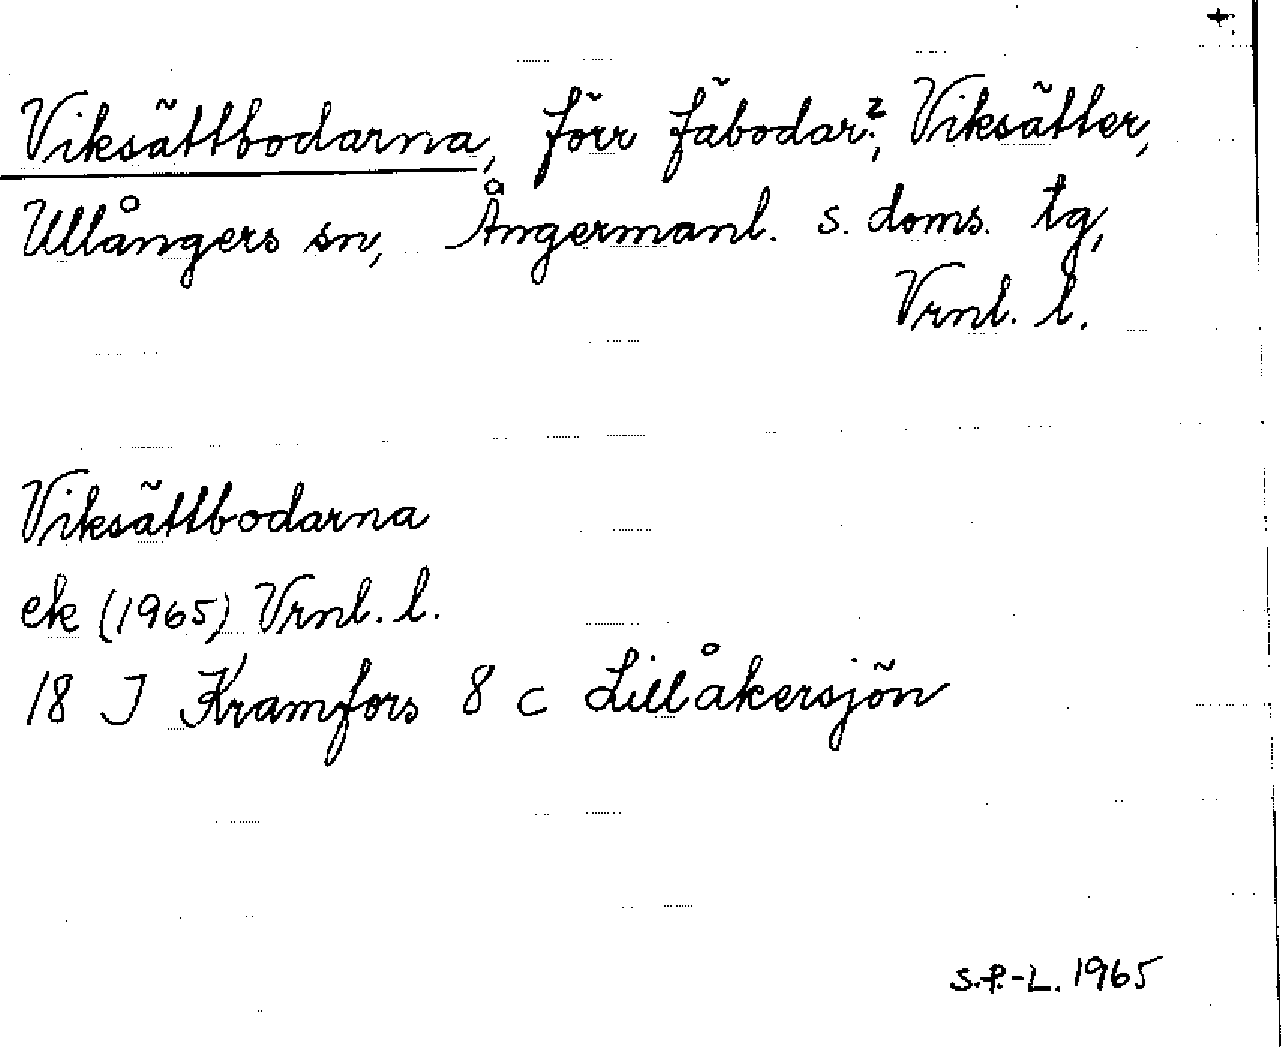 +.
Viksättbodarna, förr fäbodar?, Viksätter,
Ullångers sn, Ångermanl. s. doms. tg,
Vrnl. l.
Viksättbodarna
ek (1965) Vrnl. l.
18 J Kramfors 8 c Lillåkersjön
S.P.-L. 1965